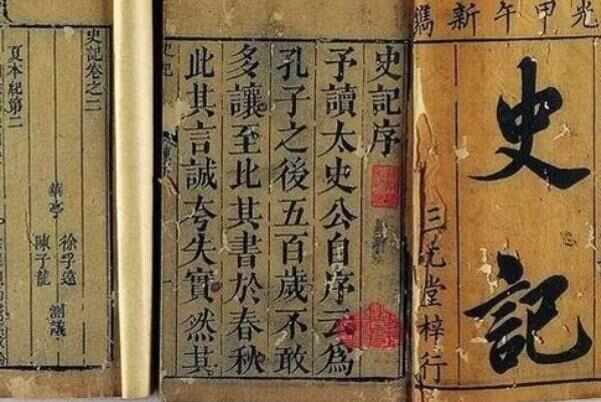 光甲午新鐫
史記
三元堂梓行
史記序
予讀太史公自序云為
孔子之後五百歲不敢
多讓至比其書於春秋
此其言誠夸失實然其
史記
史記卷之二
夏本紀第二
華亭
徐孚遠
陳子龍
測議